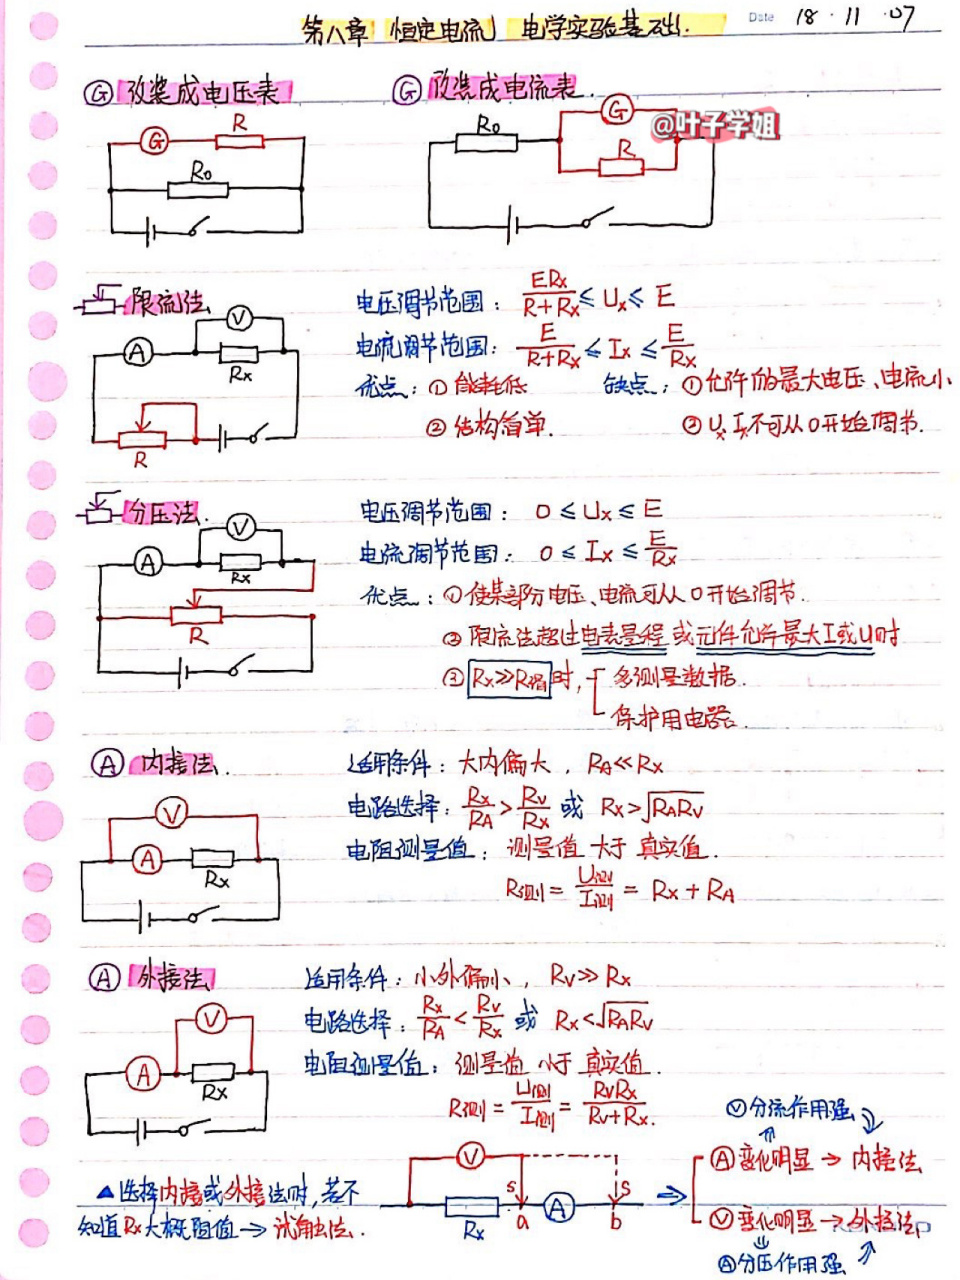 第八章 恒定电流 电学实验基础.
Date 18 · 11 · 07
G 改装成电压表
G 改装成电流表.
@叶子学姐
G R
R₀
R₀ G R
限流法
V
A
Rx
R
电压调节范围: ERx/(R+Rx) ≤ Ux ≤ E
电流调节范围: E/(R+Rx) ≤ Ix ≤ E/Rx
优点: ①能耗低 缺点: ①允许的最大电压、电流小
②结构简单. ②Ux Ix不可从0开始调节.
分压法.
V
A
Rx
R
电压调节范围: 0 ≤ Ux ≤ E
电流调节范围: 0 ≤ Ix ≤ E/Rx
优点: ①使某部分电压、电流可从0开始调节.
②限流法超过电表量程或元件允许最大I或U时
③Rx≫R滑时, 多测量数据.
保护用电器.
A 内接法.
V
A
Rx
适用条件: 大内偏大, RA≪Rx
电路选择: Rx/RA > RV/Rx 或 Rx>√RARV
电阻测量值: 测量值 大于 真实值.
R测 = U测/I测 = Rx + RA
A 外接法
V
A
Rx
适用条件: 小外偏小, RV≫Rx
电路选择: Rx/RA < RV/Rx 或 Rx<√RARV
电阻测量值: 测量值 小于 真实值.
R测 = U测/I测 = RVRx/(RV+Rx).
▲选择内接或外接法时,若不
知道Rx大概阻值→试触法.
V
S S
Rx a A b
V分流作用强
A变化明显→内接法
V变化明显→外接法
A分压作用强